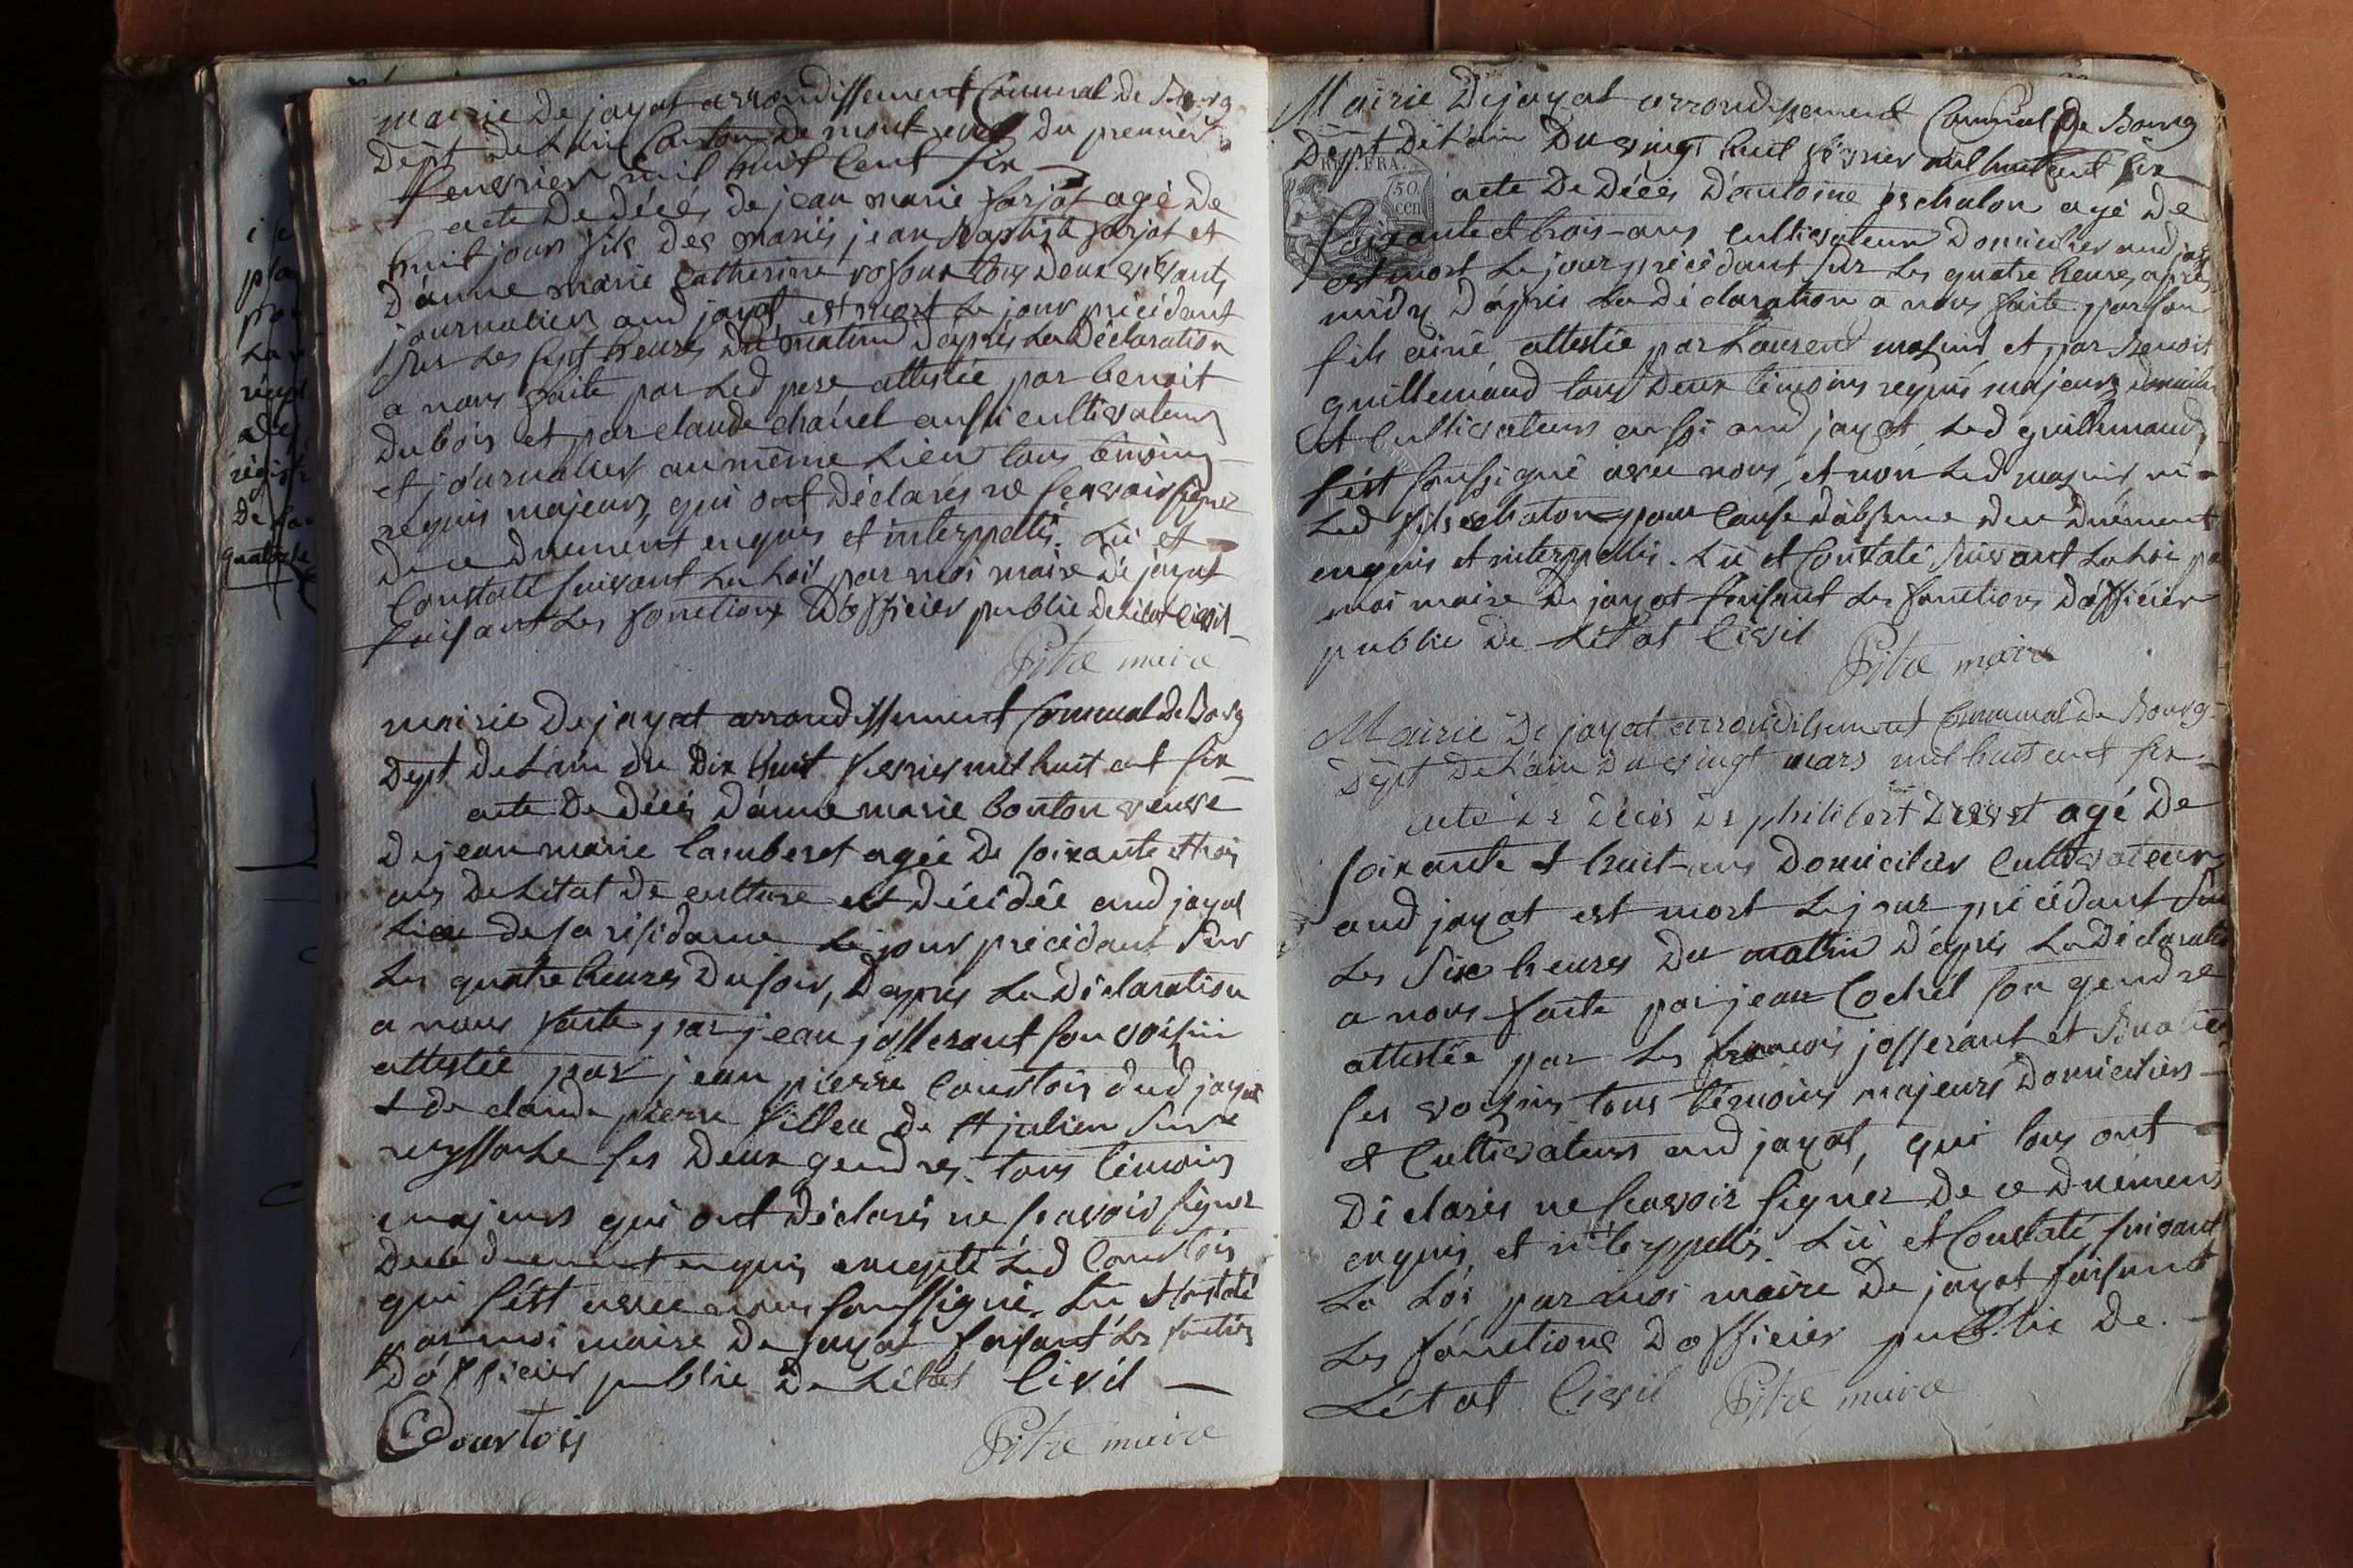 mairie De jayat arrondissement Communal de Bourg
Dépt de Lain Canton de mont revel du premier
fevrier mil huit Cent Six
acte De décés de jean marie farjat agé De
huit jours fils des mariés jean Baptiste farjat et
d'anne marie Catherine tous Deux vivants
journalier aud jayat est mort Le jour précédant
Sur Les Sept heures Du matin D'aprés La Déclaration
a nous faite par Led pere attestée par benoit
Dubois et par claude chanel aussi cultivateurs
et journalier au même Lieu tous témoins
requis majeurs qui ont Déclarés ne Scavoir signer
De ce duement enquis et interppellés. Lû et
Constaté suivant La Loi par moi maire De jayat
faisant Les fonctions D'officier public De Létat Civil
Pitre maire
mairie De jayat arrondissement Communal de Bourg
Dept De Lain du Dix huit fevrier mil huit cent six
acte De décés D'anne marie bonton veuve
De jean marie Lamberet agée De soixante et trois
ans De Létat De culture est décédée aud jayat
Lieu De sa résidance Le jour précédant sur
Les quatre heures Du soir, D'apprés La Déclaration
a nous faite par jean josserant son voisin
attestée par jean pierre Courtois dud jayat
& De claude pierre de St julien sur
reyssouze ses Deux gendres. tous témoins
majeurs qui ont Déclarés ne scavoir signer
De ce duement enquis excepté Led Courtois
qui s'est avec nous soussigné. Lû & Constaté
par moi maire De jayat faisant Les fonctions
D'officier public De Létat Civil
Courtois
Pitre maire
Mairie De jayat arrondissement Communal De Bourg
Dépt De L'ain Du vingt huit février mil huit cent Six
REP. FRA.
50.
cen
acte De Décés D'antoine echalon agé De
Soixante et trois ans cultivateur Domicilier aud jayat
est mort Le jour précédant sur Les quatre heures aprés
midy D'aprés La Déclaration a nous faite par son
fils ainé attestée par Laurent et par Benoit
guillemaud tous Deux témoins requis majeurs
et Cultivateurs aussi aud jayat Led guillemaud
s'est soussigné avec nous, et non Led ni
Led fils echalon pour cause d'absence De ce Duement
enquis et interppellés. Lû et Constaté suivant La Loi par
moi maire De jayat faisant Les fonctions D'officier
public De Létat Civil
Pitre maire
Mairie De jayat arrondissement Communal De Bourg
Dépt De L'ain Du vingt mars mil huit cent six
acte De Décés De philibert agé De
soixante & huit ans Domicilier Cultivateur
aud jayat est mort Le jour précédant Sur
Les Six heures Du matin D'aprés La Déclaration
a nous faite par jean Cochet son gendre
attestée par Les francois josserant et
ses voisins tous témoins majeurs Domiciliers
& Cultivateurs aud jayat, qui tous ont
Déclarés ne scavoir signer De ce Duement
enquis et interppellés. Lû et Constaté suivant
La Loi par moi maire De jayat faisant
Les fonctions D'officier public De
Létat Civil
Pitre maire